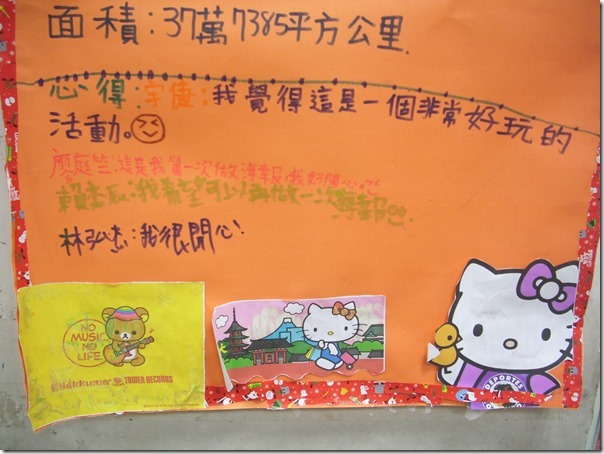 面積：37萬7385平方公里.
心得：宇倢：我覺得這是一個非常好玩的
活動。
廖庭竺：這是我第一次做海報，我好開心ㄛ
賴 ：我希望可以再做一次海報
林弘 ：我很開心！
NO
MUSIC
NO
LIFE.
Rilakkuma TOWER RECORDS
DEPORTES